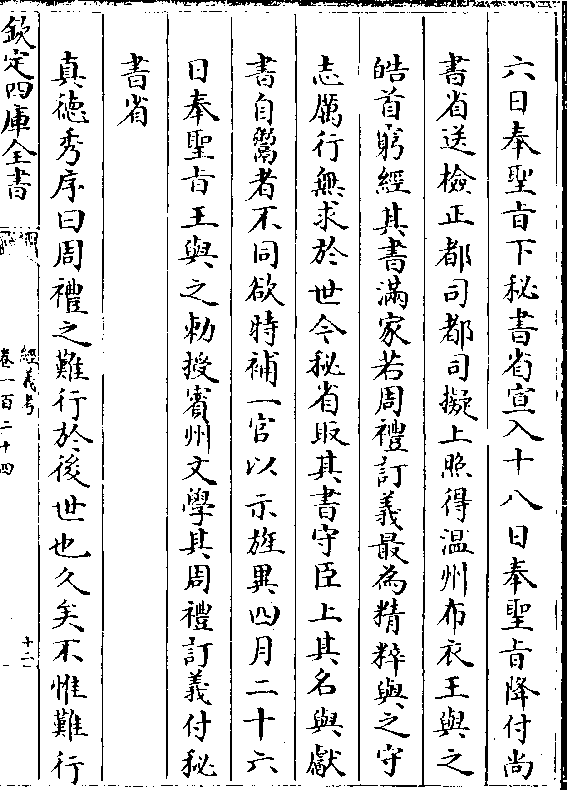 六日奉聖旨下秘書省宣入十八日奉聖旨降付尚
書省送檢正都司都司擬上照得温州布衣王與之
皓首窮經其書滿家若周禮訂義最為精粹與之守
志厲行無求於世今秘省取其書守臣上其名與獻
書自鬻者不同欲時補一官以示旌異四月二十六
日奉聖旨王與之勅授賓州文學其周禮訂義付秘
書省
真德秀序曰周禮之難行於後世也久矣不惟難行
欽定四庫全書
經義考
卷一百二十四
十二